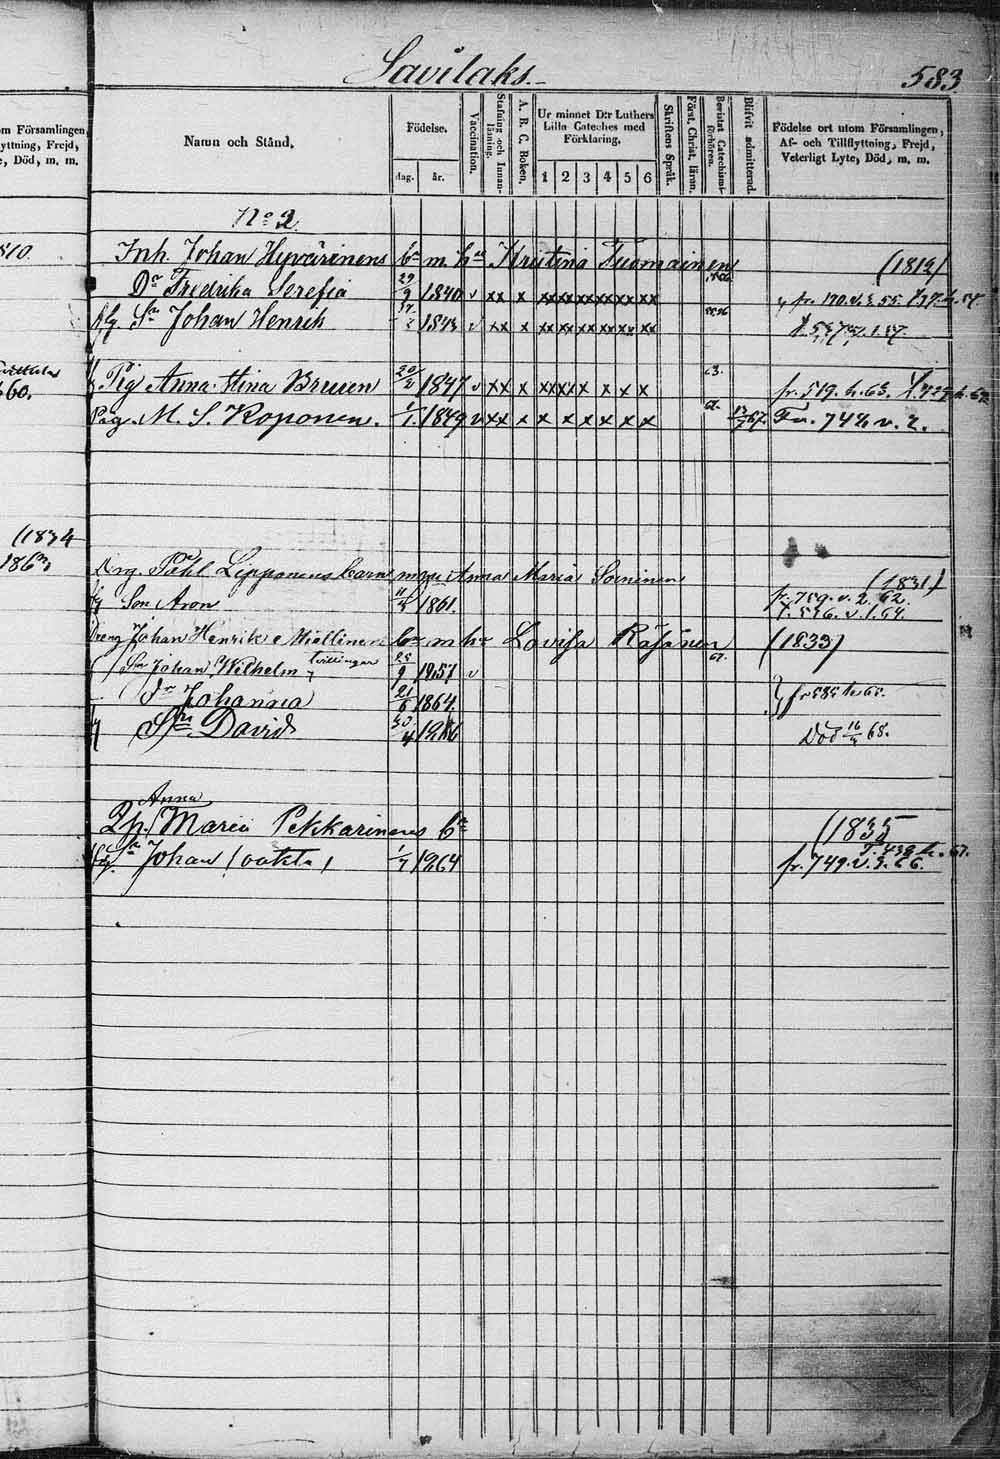 Savilaks.
583.
om Församlingen,
yttning, Frejd,
e, Död, m. m.
Namn och Stånd.
Födelse.
dag. år.
Vaccination.
Stafning och Innan-läsning.
A. B. C. Boken.
Ur minnet D:r Luthers Lilla Cateches med Förklaring.
1 2 3 4 5 6
Skriftens Språk.
Först. Christ. läran.
Bevistat Catechismi-förhören.
Blifvit admitterad.
Födelse ort utom Församlingen, Af- och Tillflyttning, Frejd, Veterligt Lyte, Död, m. m.
No 2.
Inh. Johan Hyvärinens bn m. hu Kristina Tuomainen (1812)
Dr Fredrika Serefia 29/9 1840 v xx x xx xx xx xx xx xx
Sn Johan Henrik 1843 v xx x xx xx xx xx xx xx
Pig Anna Stina Bruun 20/2 1847 v xx x xx xx x x x x 63. fr. 519. h. 63.
Pig. M. S. Koponen. 1/1. 1849 v xx x x x x x x x 67. Fr. 742 v. 2.
(1834
186
Drg. Påhl Lipponens barn m hu Anna Maria Soininen (1831)
Son Aron 11/3 1861. fr. 759. v. 2. 62.
t. 536. v. 1. 64.
Dreng Johan Henrik Miettinens bn m hu Lovisa Räsänen (1833)
Sn Johan Wilhelm tvillingar 28/9 1857 v 67.
Dr Johanna 21/6 1864. fr 585 h 65.
Sn David 30/4 1866 Död 16/ 68.
Anna
Maria Pekkarinens bn (1835
Sn Johan (oäkta) 1/7 1864 fr. 749. v. 3. 66.